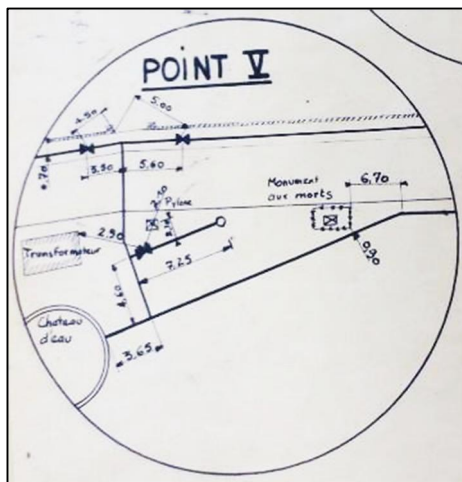 POINT V
4.50
5.00
0.70
5.50
5.60
Monument
aux morts
6.70
Pylone
2.90
Transformateur
7.25
0.90
4.60
Chateau
d'eau
3.65